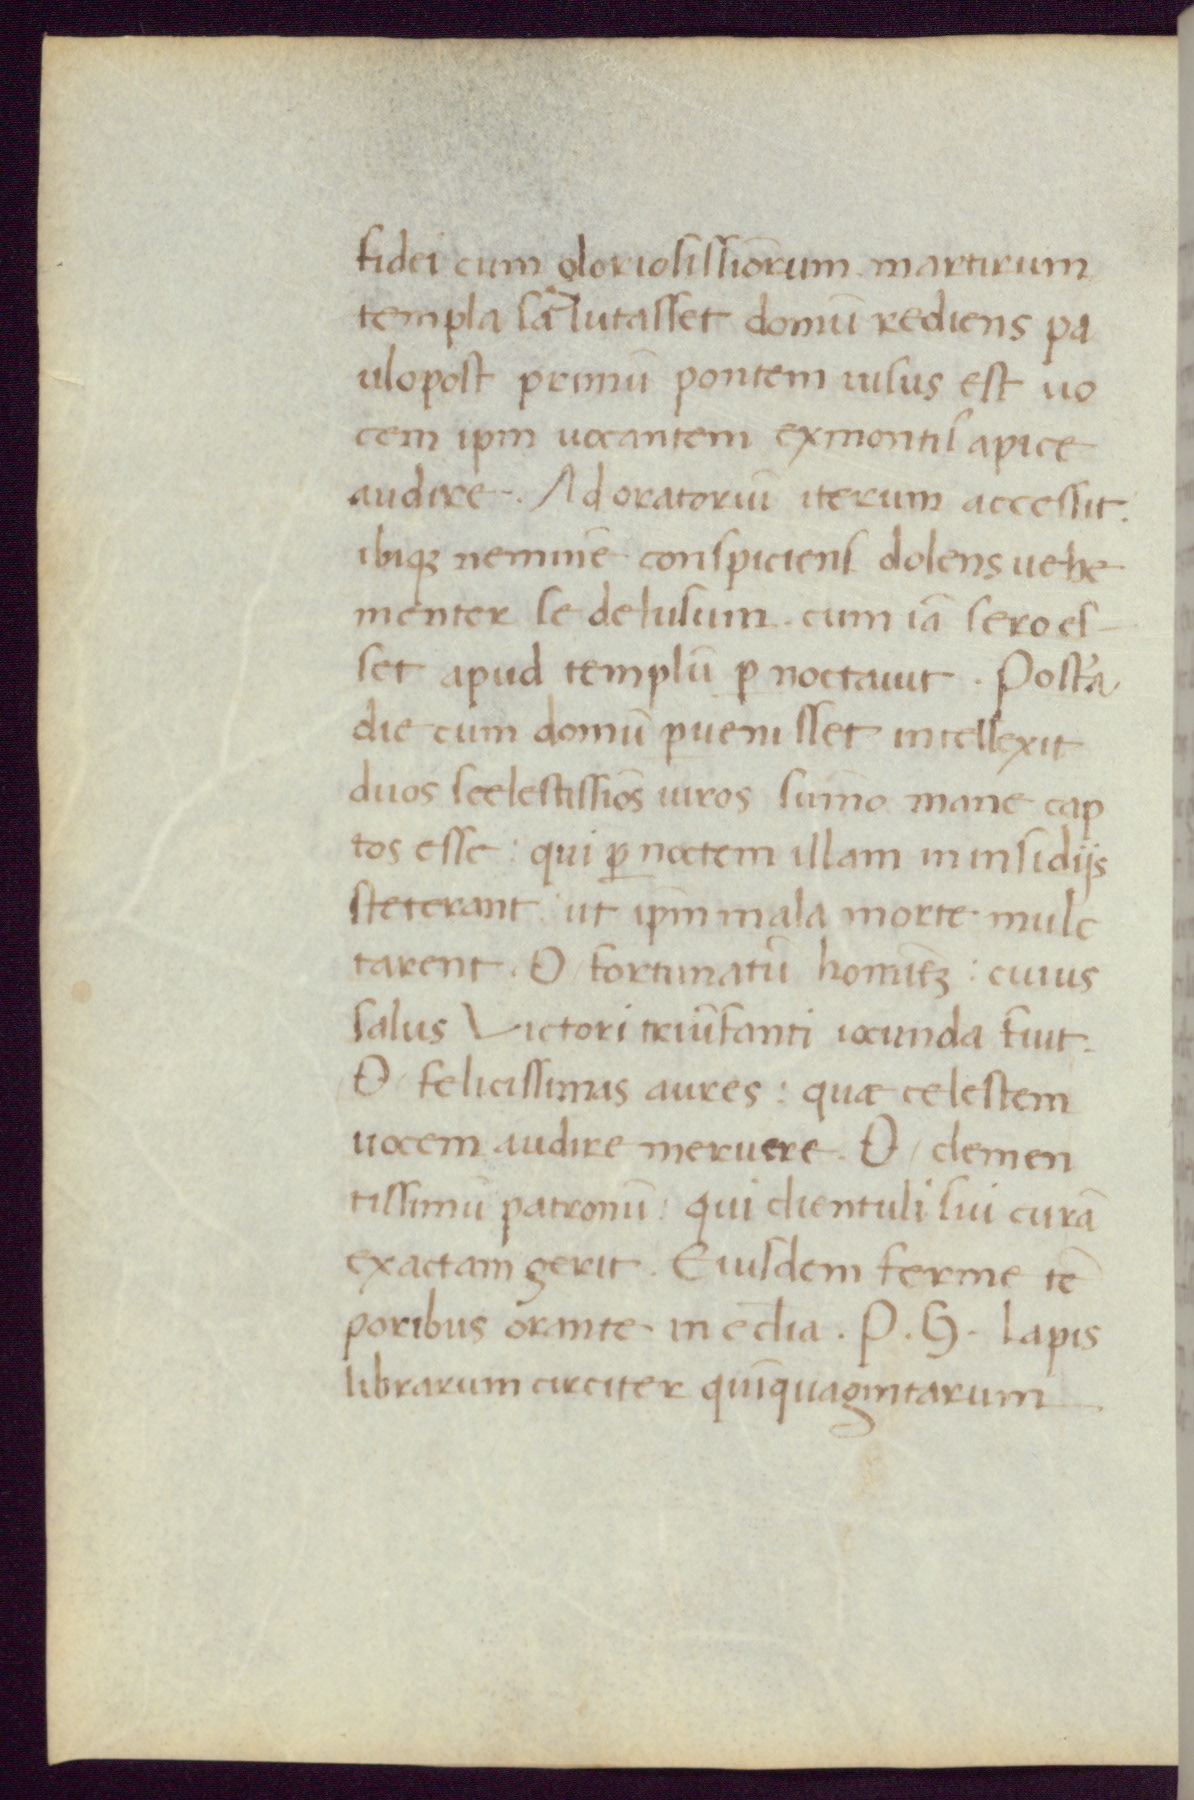 fidei cum gloriosissiōrum martirum
templa salutasset domū rediens pa
ulopost primū pontem uisus est uo
cem ipm uocantem exmontis apice
audire. Ad oratoriū iterum accessit.
ibiqꝫ neminē conspiciens dolens uehe
menter se delusum. cum iā sero es-
set apud templū ꝑ noctauit. Postꝛa
die cum domū ꝑuenisset intellexit
duos scelestissiōs uiros sūmo mane cap
tos esse: qui ꝑ noctem illam in insidijs
steterant: ut ipm mala morte mulc
tarent. O fortunatū hominēꝫ: cuius
salus Victori triūfanti iocunda fuit.
O felicissimas aures: quæ celestem
uocem audire meruere. O clemen
tissimū patronū: qui clientuli sui curā
exactam gerit. Eiusdem ferme tē
poribus orante in ec̄lia. P. G. lapis
librarum circiter quīquagintarum